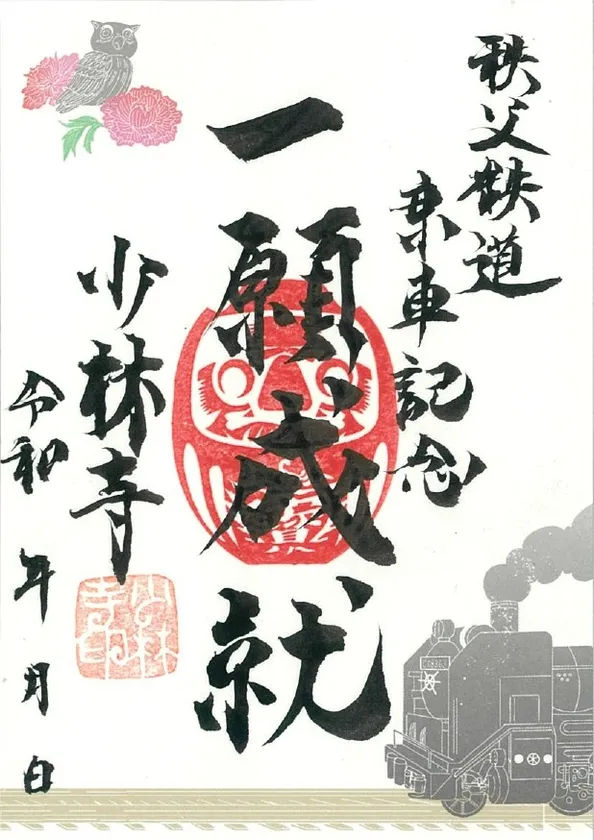 秩父鉄道
乗車記念
一願成就
少林寺
少林寺印
令和 年 月 日